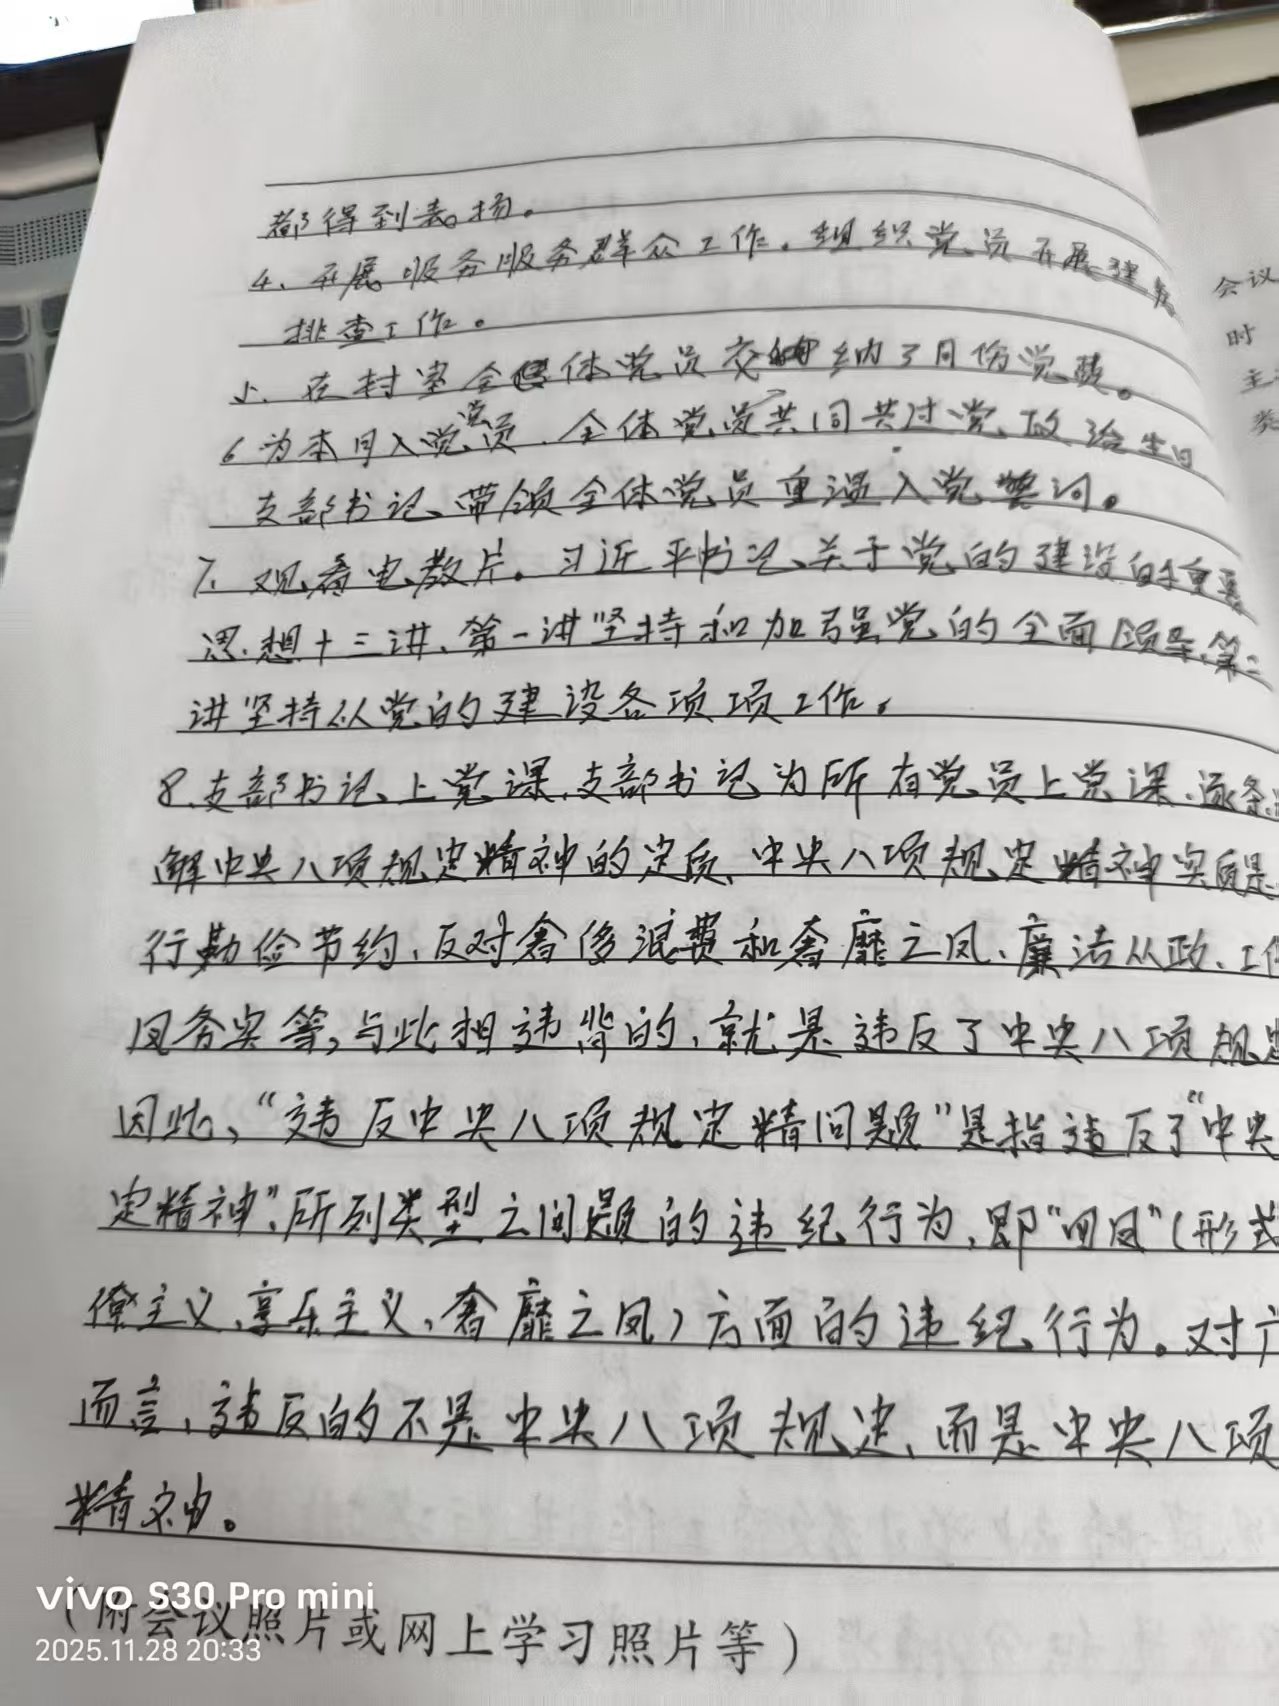 都得到表扬。
4、开展服务服务群众工作。组织党员开展建房
排查工作。
5、在村室全体党员交纳了月份党费。
6为本月入党党员、全体党员共同共过党政治生日
支部书记、带领全体党员重温入党誓词。
7、观看电教片。习近平书记、关于党的建设的重要
思想十三讲、第一讲坚持和加强党的全面领导、第二
讲坚持从党的建设各项项工作。
8、支部书记、上党课、支部书记为所有党员上党课、逐条
解中央八项规定精神的定质、中央八项规定精神实质是
行勤俭节约、反对奢侈浪费和奢靡之风、廉洁从政、工作
风务实等,与此相违背的、就是违反了中央八项规定
因此、“违反中央八项规定精问题”是指违反了“中央
定精神”、所列类型之间题的违纪行为、即“四风”(形式
僚主义、享乐主义、奢靡之风)方面的违纪行为。对
而言、违反的不是中央八项规定、而是中央八项
精神。
(附会议照片或网上学习照片等)
会议
时
主
vivo S30 Pro mini
2025.11.28 20:33